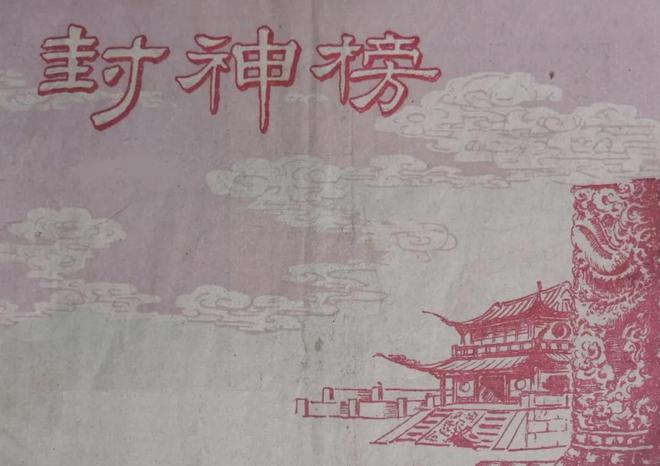 封神榜